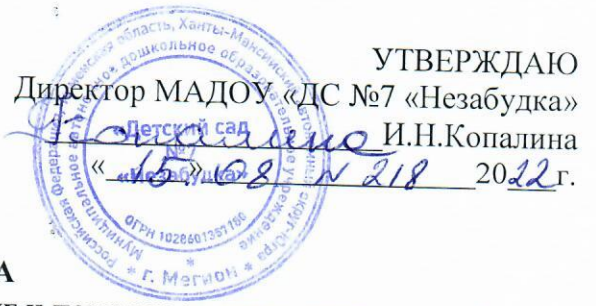 УТВЕРЖДАЮ
Директор МАДОУ «ДС №7 «Незабудка»
И.Н.Копалина
«15» 08 N 218 2022г.
Российская Федерация
Ханты-Мансийский автономный округ-Югра
* г. Мегион *
Муниципальное автономное дошкольное образовательное учреждение
«Детский сад
№7
«Незабудка»
ОГРН 1028601357180
А